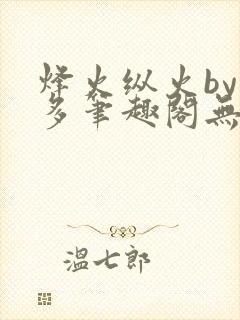 烽火纵火by
多笔趣阁無
溫七郎